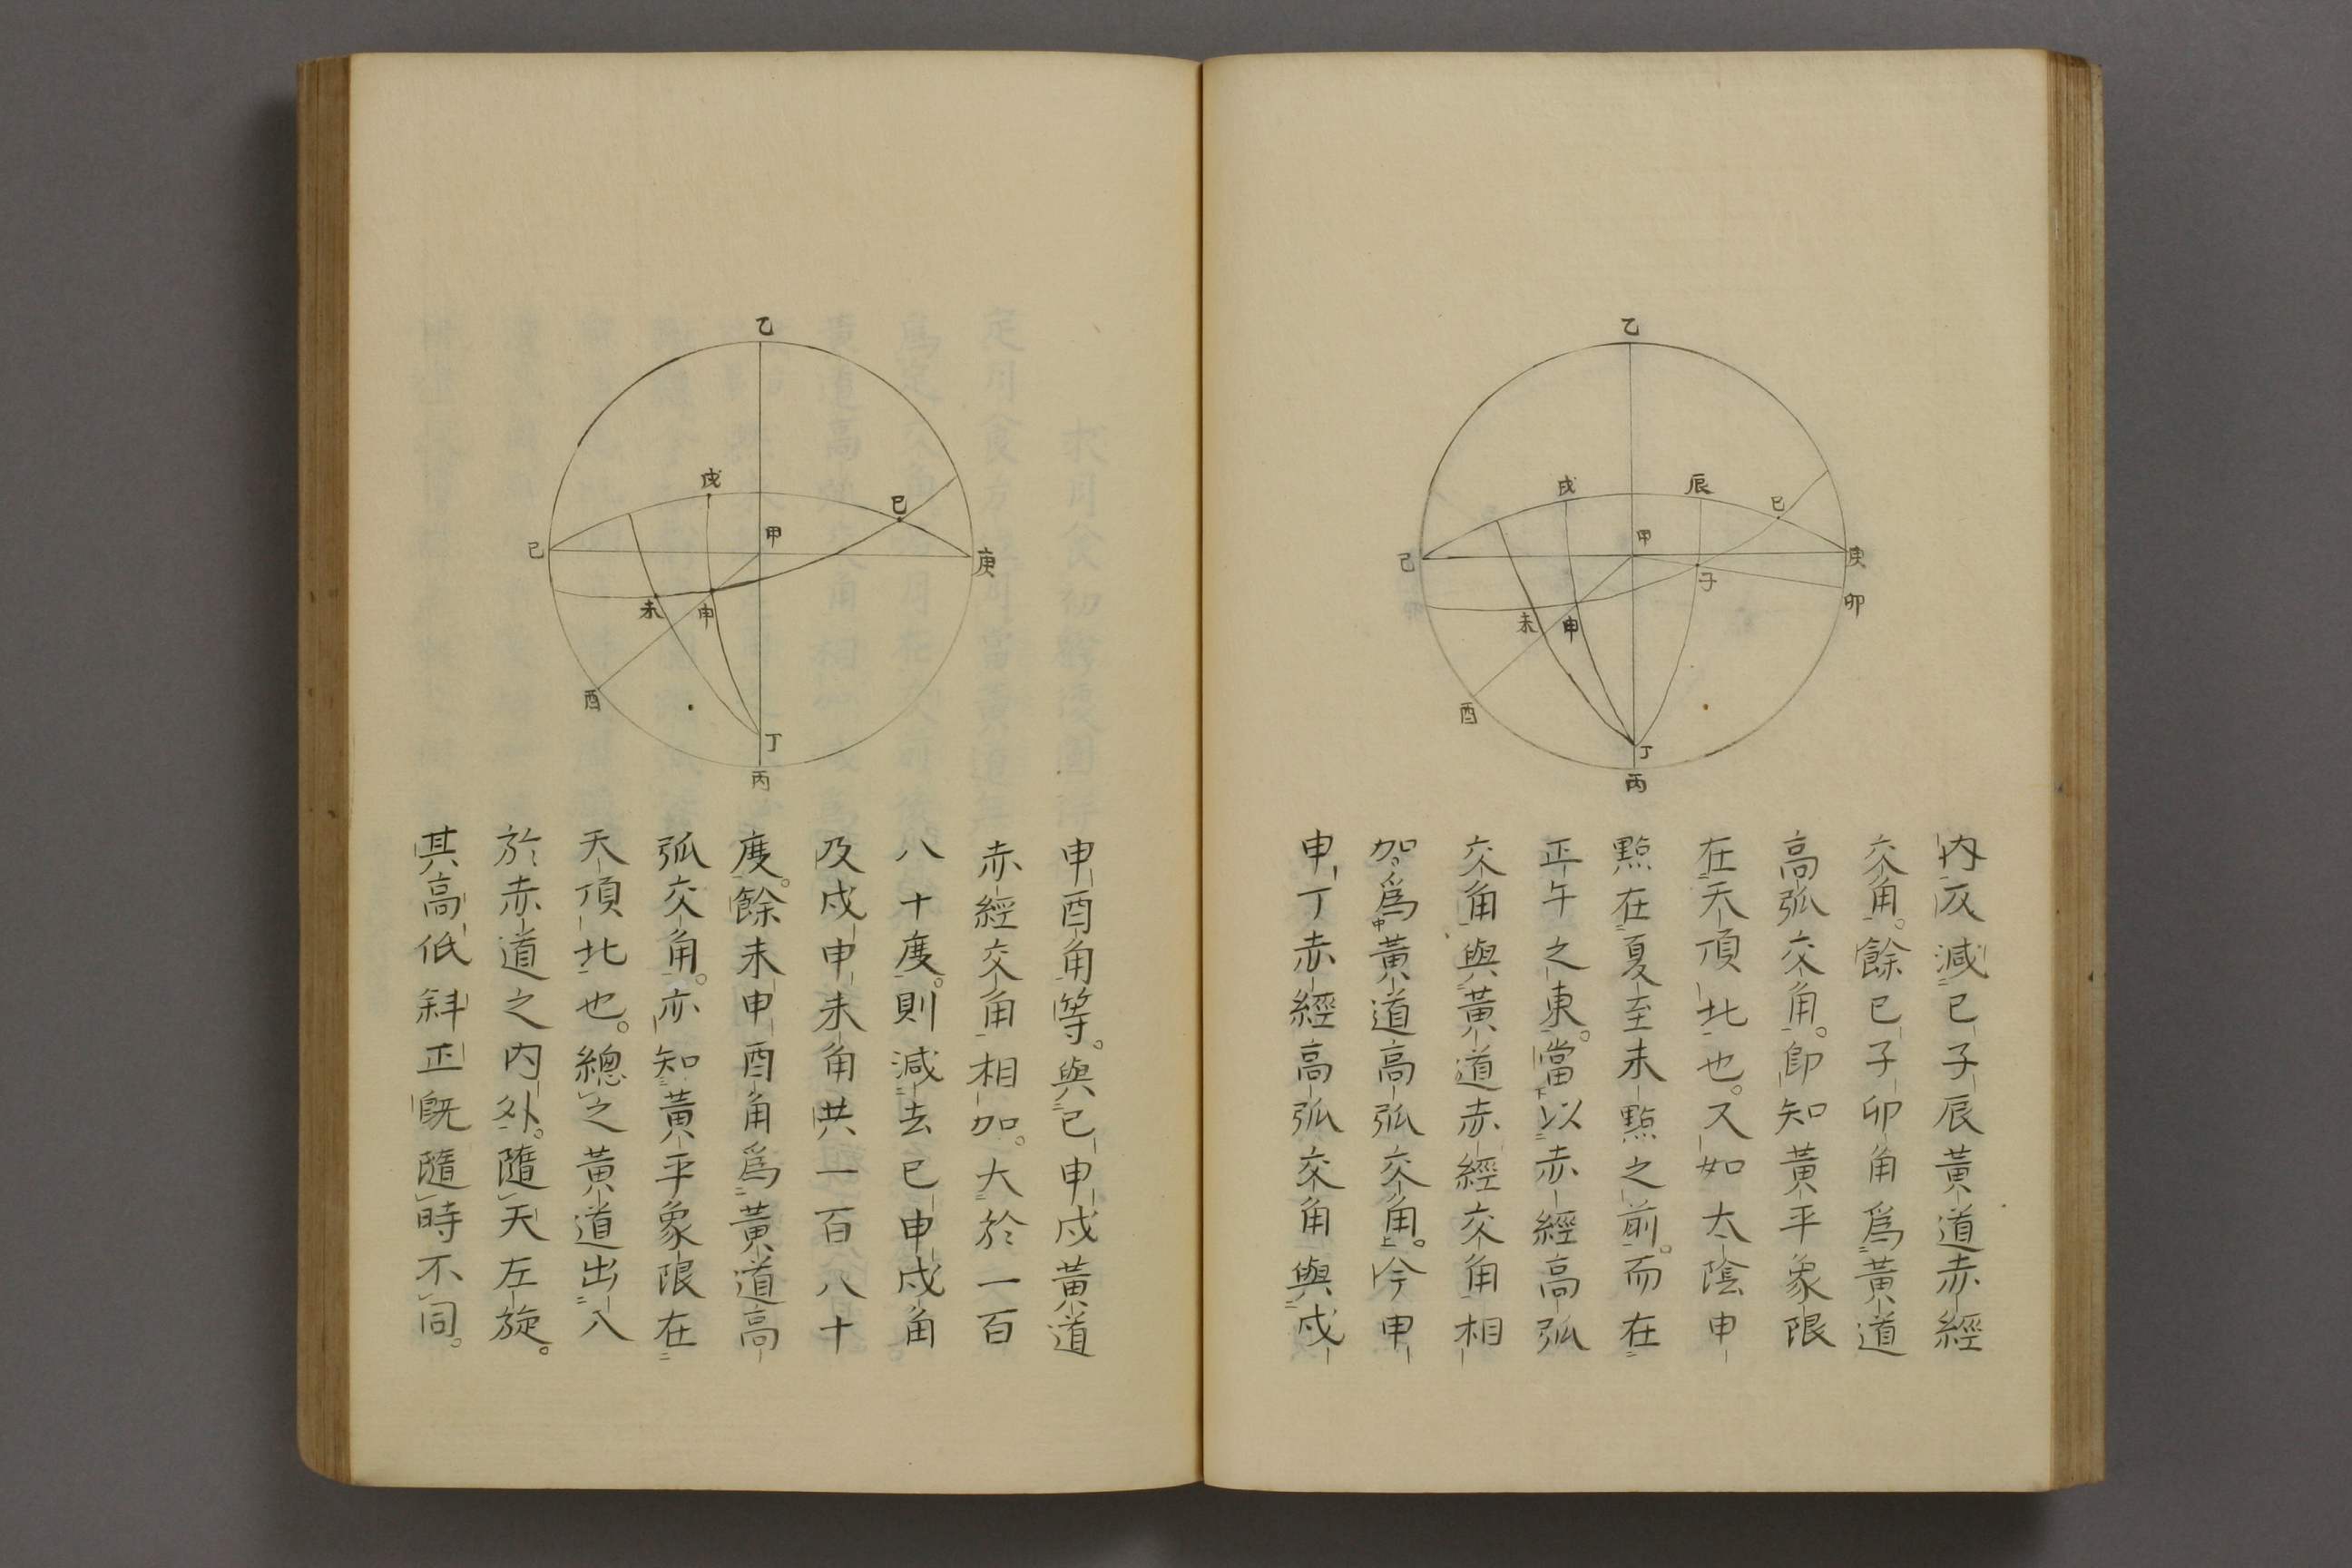 乙
戌
辰
巳
甲
己
庚
子
卯
未
申
酉
丁
丙
内反減巳子辰黃道赤經
交角。餘巳子卯角爲黃道
高弧交角。卽知黃平象限
在天頂北也。又如太陰申
點在夏至未點之前。而在
正午之東。當以赤經高弧
交角與黃道赤經交角相
加爲黃道高弧交角。今申
申丁赤經高弧交角與戌
乙
戌
巳
甲
己
庚
未
申
酉
丁
丙
申酉角等。與巳申戌黃道
赤經交角相加。大於一百
八十度。則減去巳申戌角
及戌申未角共一百八十
度。餘未申酉角爲黃道高
弧交角。亦知黃平象限在
天頂北也。總之黃道出入
於赤道之内外。隨天左旋。
其高低斜正旣隨時不同。